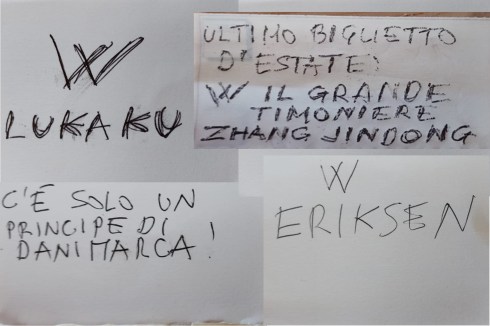 W
LUKAKU
ULTIMO BIGLIETTO
D'ESTATE:
W IL GRANDE
TIMONIERE
ZHANG JINDONG
C'È SOLO UN
PRINCIPE DI
DANIMARCA!
W
ERIKSEN